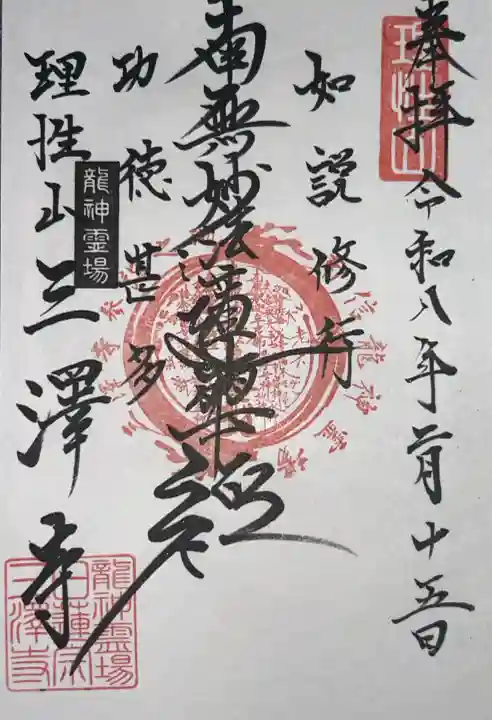 奉拝 令和八年二月十五日
理性山
如説修行
南無妙法蓮華経
功徳甚多
龍神霊場
理性山三澤寺
龍神霊場
日蓮宗
三澤寺